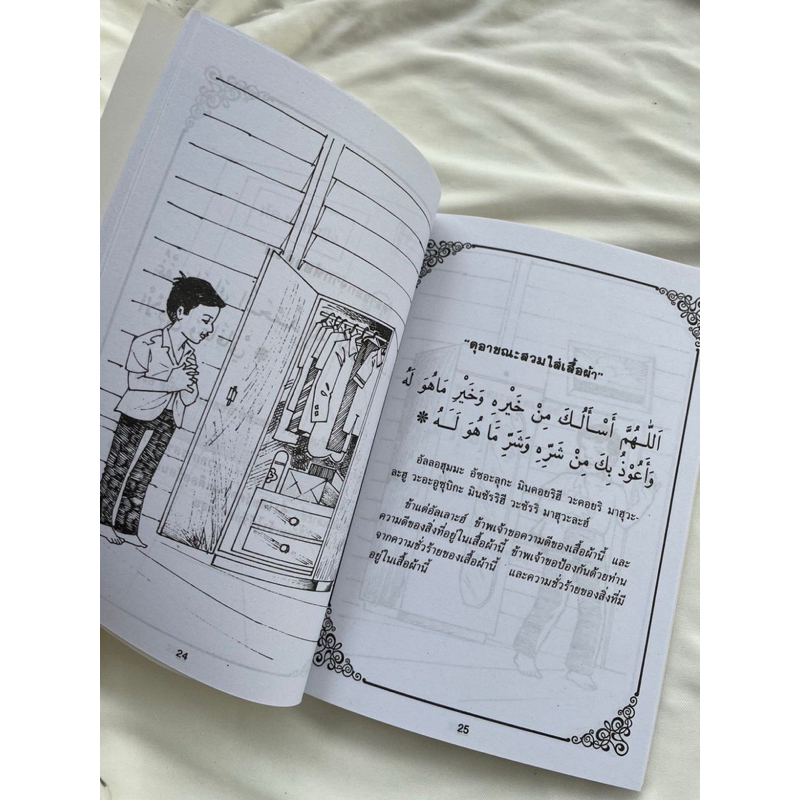 24
"ดุอาขณะสวมใส่เสื้อผ้า"
اَللّٰهُمَّ أَسْأَلُكَ مِنْ خَيْرِهِ وَخَيْرِ مَاهُوَ لَهُ
وَأَعُوْذُ بِكَ مِنْ شَرِّهِ وَشَرِّ مَا هُوَ لَهُ *
อัลลอฮุมมะ อัซอะลุกะ มินคอยริฮี วะคอยริ มาฮุวะ-
ละฮู วะอะอูซุบิกะ มินชัรริฮี วะชัรริ มาฮุวะละฮ์
ข้าแต่อัลเลาะฮ์ ข้าพเจ้าขอความดีของเสื้อผ้านี้ และ
ความดีของสิ่งที่อยู่ในเสื้อผ้านี้ ข้าพเจ้าขอป้องกันด้วยท่าน
จากความชั่วร้ายของเสื้อผ้านี้ และความชั่วร้ายของสิ่งที่มี
อยู่ในเสื้อผ้านี้
25